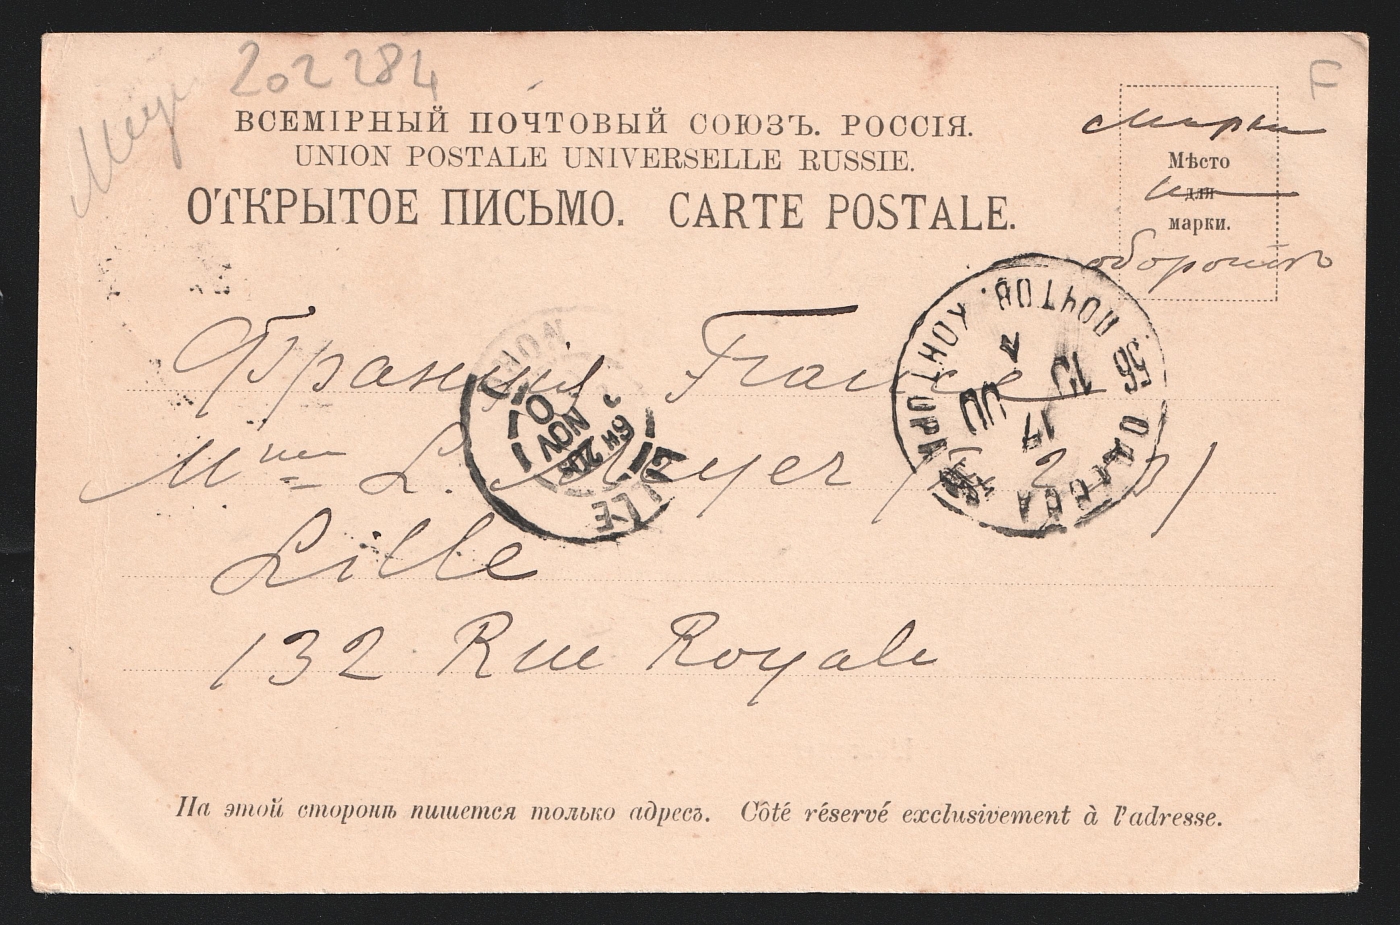 202284
F
ВСЕМІРНЫЙ ПОЧТОВЫЙ СОЮЗЪ. РОССІЯ.
UNION POSTALE UNIVERSELLE RUSSIE.
ОТКРЫТОЕ ПИСЬМО. CARTE POSTALE.
Марки
Мѣсто
на
для
марки.
оборотѣ
Франція France
Mme L. Meyer
Lille
132 Rue Royale
56 ОДЕССА
ПОЧТОВ.
17 10 00
LILLE
NORD
6E 20
NOV
На этой сторонѣ пишется только адресъ. Côté réservé exclusivement à l'adresse.